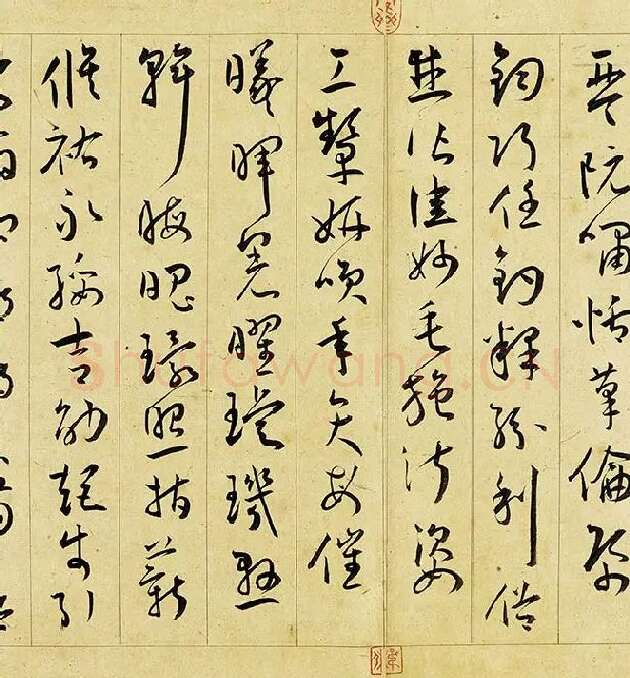 琴阮嘯恬筆倫紙
鈞巧任釣釋紛利俗
並皆佳妙毛施淑姿
工顰妍咲年矢每催
曦暉晃曜璇璣懸
斡晦魄環照指薪
脩祐永綏吉劭矩步引
Shufawang.CN